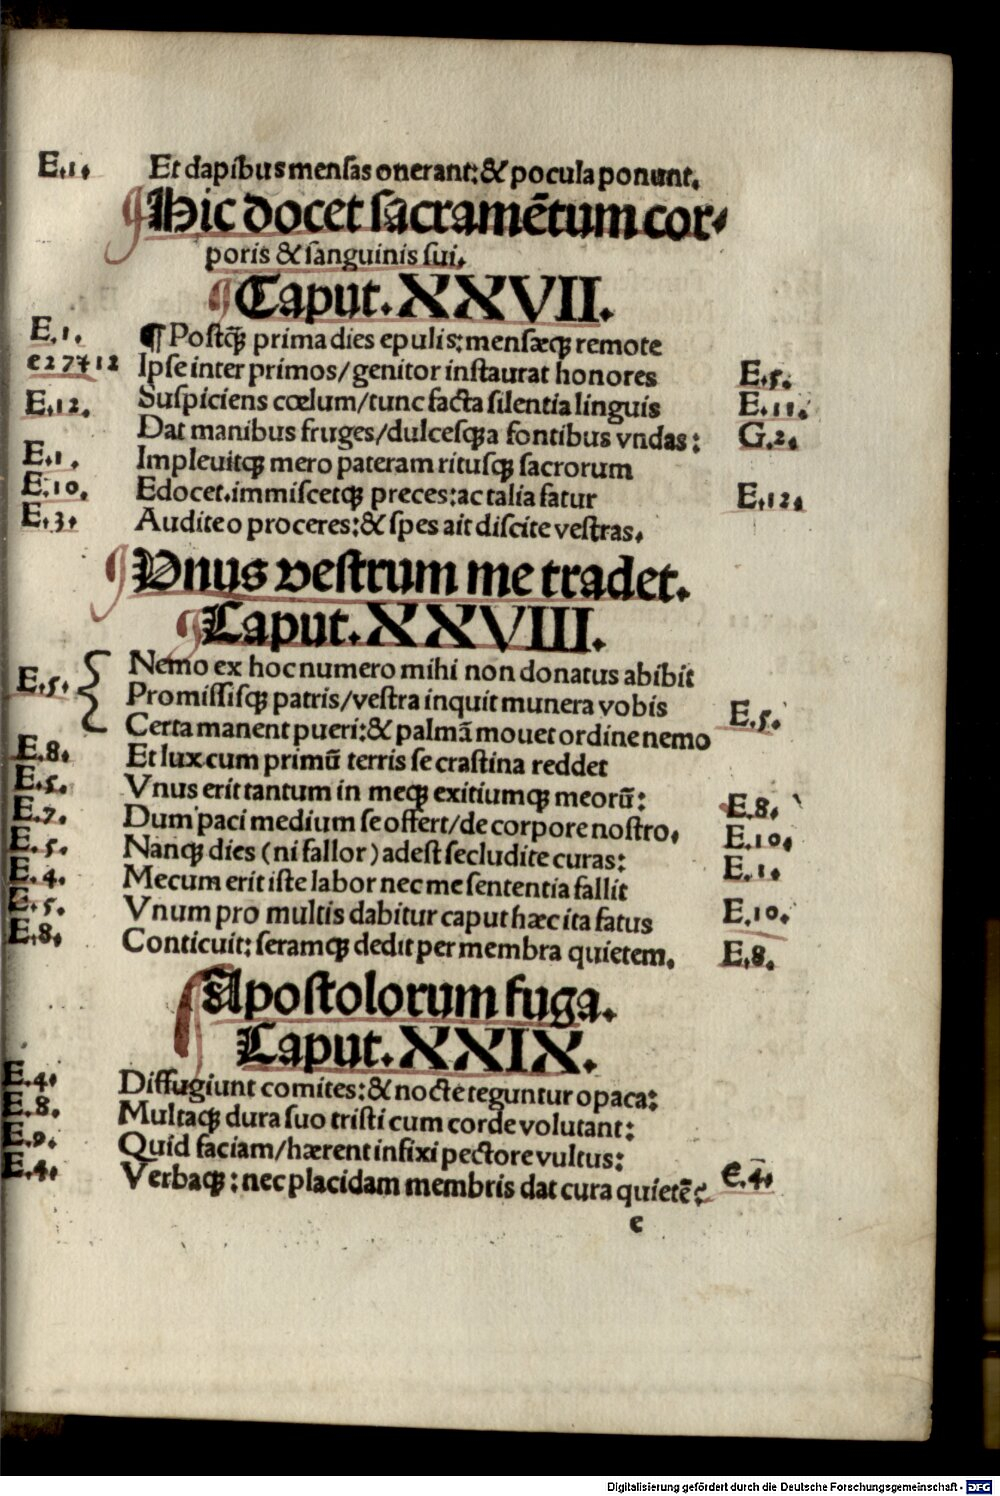 E.1. Et dapibus mensas onerant: & pocula ponunt.
Hic docet sacramētum cor-
poris & sanguinis sui.
Caput. XXVII.
E.1. ¶ Postq̄ prima dies epulis: mensæq; remote
e 2 7 4 12 Ipse inter primos/genitor instaurat honores E.5.
E.12. Suspiciens cœlum/tunc facta silentia linguis E.11.
Dat manibus fruges/dulcesq; a fontibus vndas: G.2.
E.1. Impleuitq; mero pateram ritusq; sacrorum
E.10. Edocet. immiscetq; preces: ac talia fatur E.12.
E.3. Audite o proceres: & spes ait discite vestras.
Vnus vestrum me tradet.
Caput. XXVIII.
Nemo ex hoc numero mihi non donatus abibit
E.5. Promissisq; patris/vestra inquit munera vobis
Certa manent pueri: & palmā mouet ordine nemo E.5.
E.8. Et lux cum primū terris se crastina reddet
E.5. Vnus erit tantum in meq; exitiumq; meorū: E.8.
E.7. Dum paci medium se offert/de corpore nostro. E.10.
E.5. Nanq; dies (ni fallor) adest secludite curas: E.1.
E.4. Mecum erit iste labor nec me sententia fallit
E.5. Vnum pro multis dabitur caput hæc ita fatus E.10.
E.8. Conticuit: seramq; dedit per membra quietem. E.8.
Apostolorum fuga.
Caput. XXIX.
E.4. Diffugiunt comites: & nocte teguntur opaca:
E.8. Multaq; dura suo tristi cum corde volutant:
E.9. Quid faciam/hærent infixi pectore vultus:
E.4. Verbaq;: nec placidam membris dat cura quietē: E.4.
e
Digitalisierung gefördert durch die Deutsche Forschungsgemeinschaft - DFG